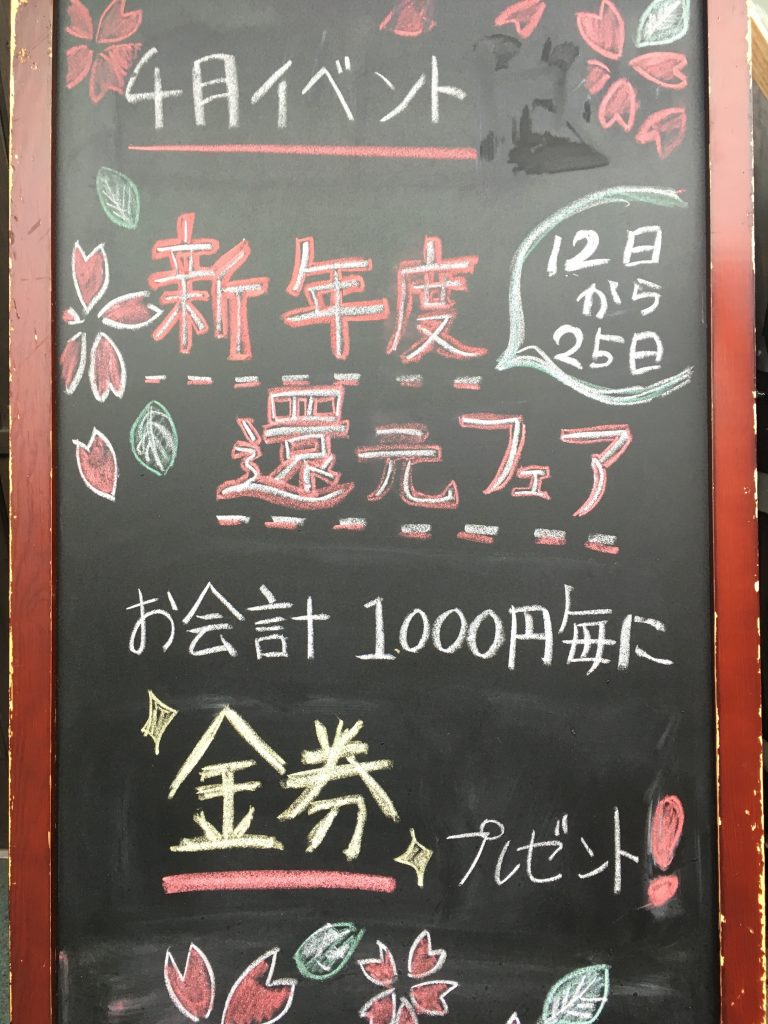 4月イベント
新年度
12日
から
25日
還元フェア
お会計 1000円毎に
金券
プレゼント!